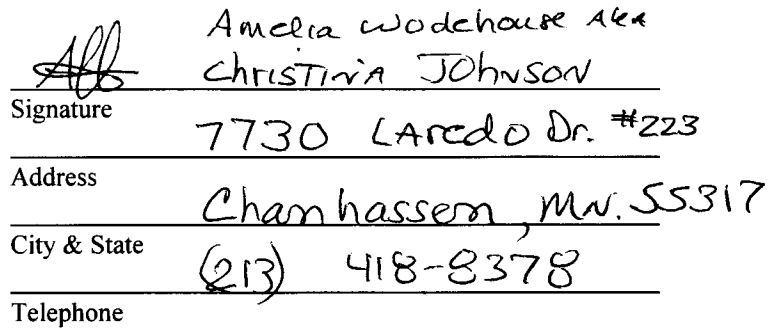 Amelia Wodehouse AKA
Christina Johnson
Signature
7730 Laredo Dr. #223
Address
Chanhassen, MN. 55317
City & State
(213) 418-8378
Telephone